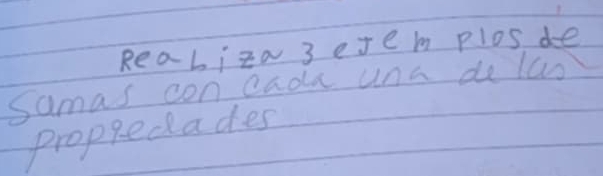 Realiza 3 ejemplos de
Sumas con cada una de las
propiedades